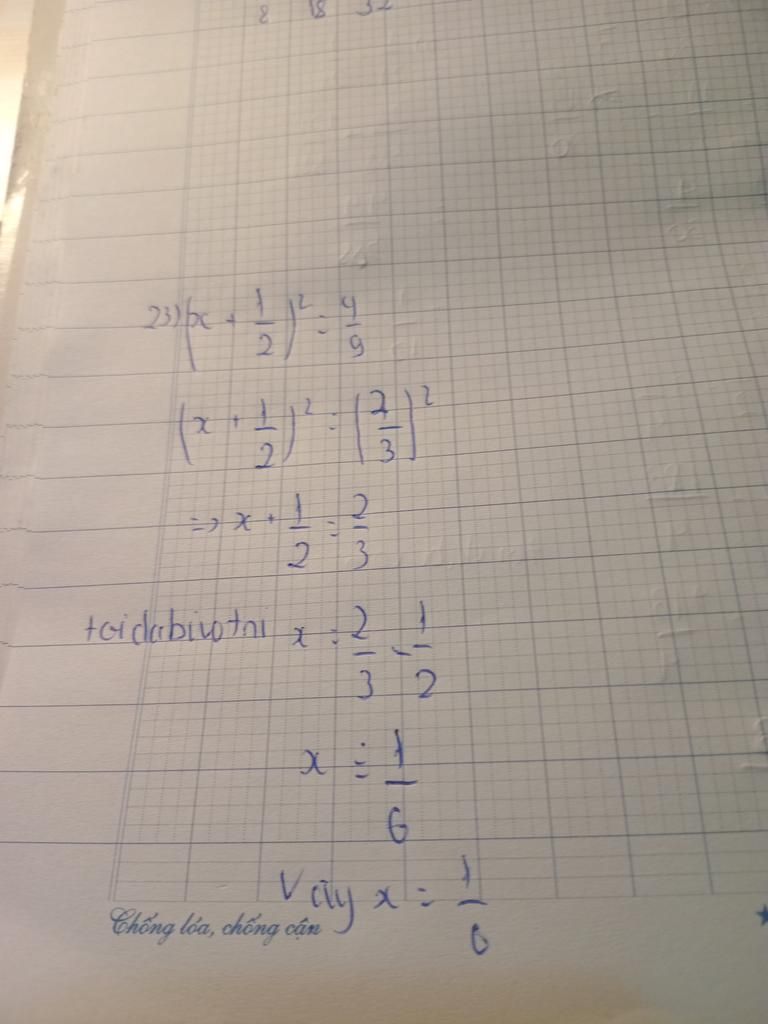 8 18 32
23) (x + 1/2)² = 4/9
(x + 1/2)² = (2/3)²
=> x + 1/2 = 2/3
toidabivotni x = 2/3 - 1/2
x = 1/6
Vậy x = 1/6
Chống lóa, chống cận